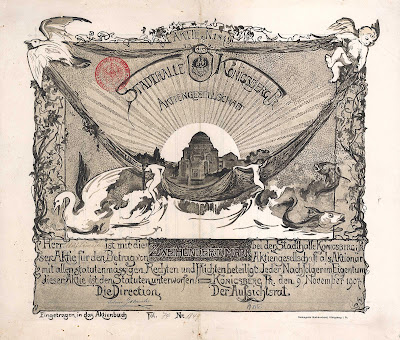 AKTIE N:
STADTHALLE KÖNIGSBERG Pr.
AKTIENGESELLSCHAFT
Herr ist mit die bei der Stadthalle Königsberg
ser Aktie für den Betrag von ZWEIHUNDERT MARK Aktiengesellschaft als Aktionär
mit allen statutenmässigen Rechten und Pflichten beteiligt. Jeder Nachfolger im Eigentum
dieser Aktie ist den Statuten unterworfen. KÖNIGSBERG Pr. den 9. November 1907.
Die Direction. Der Aufsichtsrat.
Eingetragen in das Aktienbuch Fol. Nr.